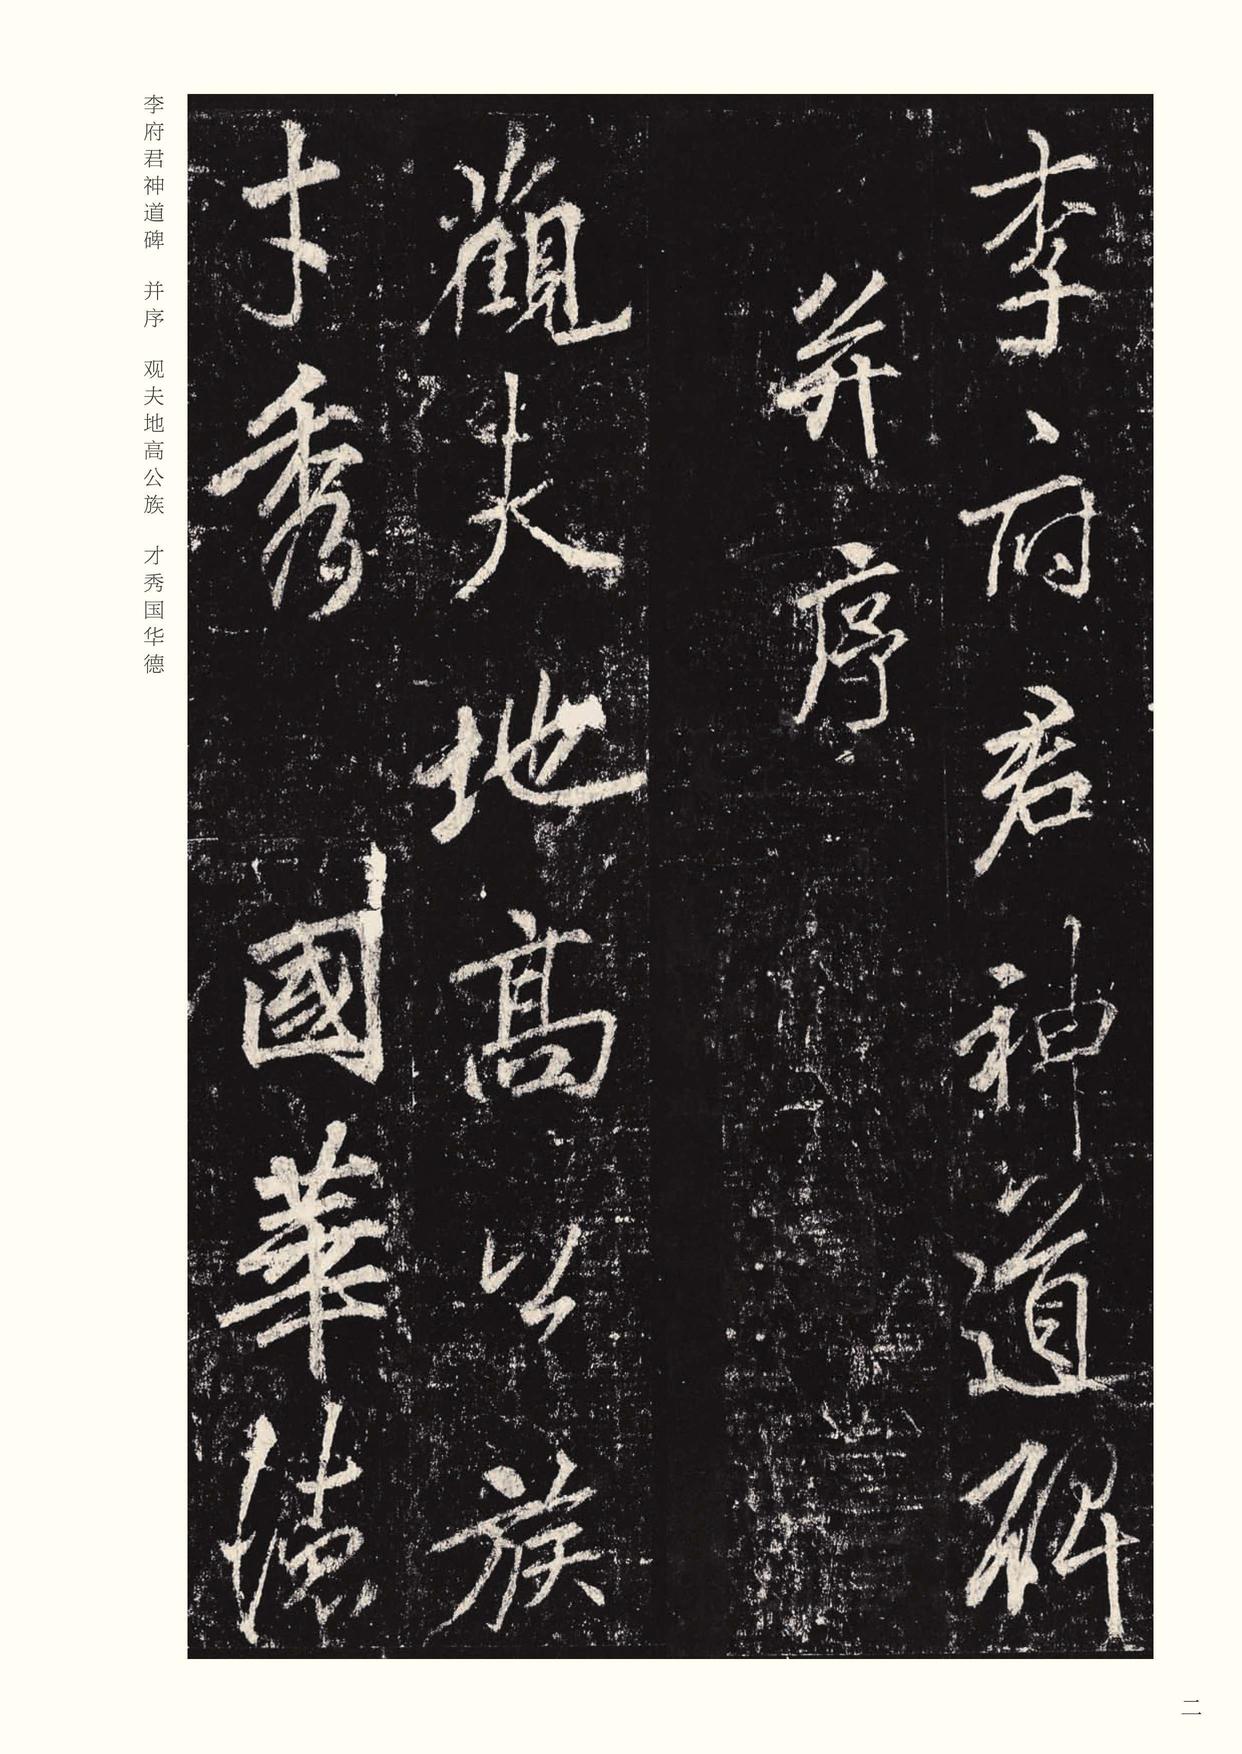 李府君神道碑
并序
觀夫地高公族
才秀國華德
李府君神道碑　并序　观夫地高公族　才秀国华德
二